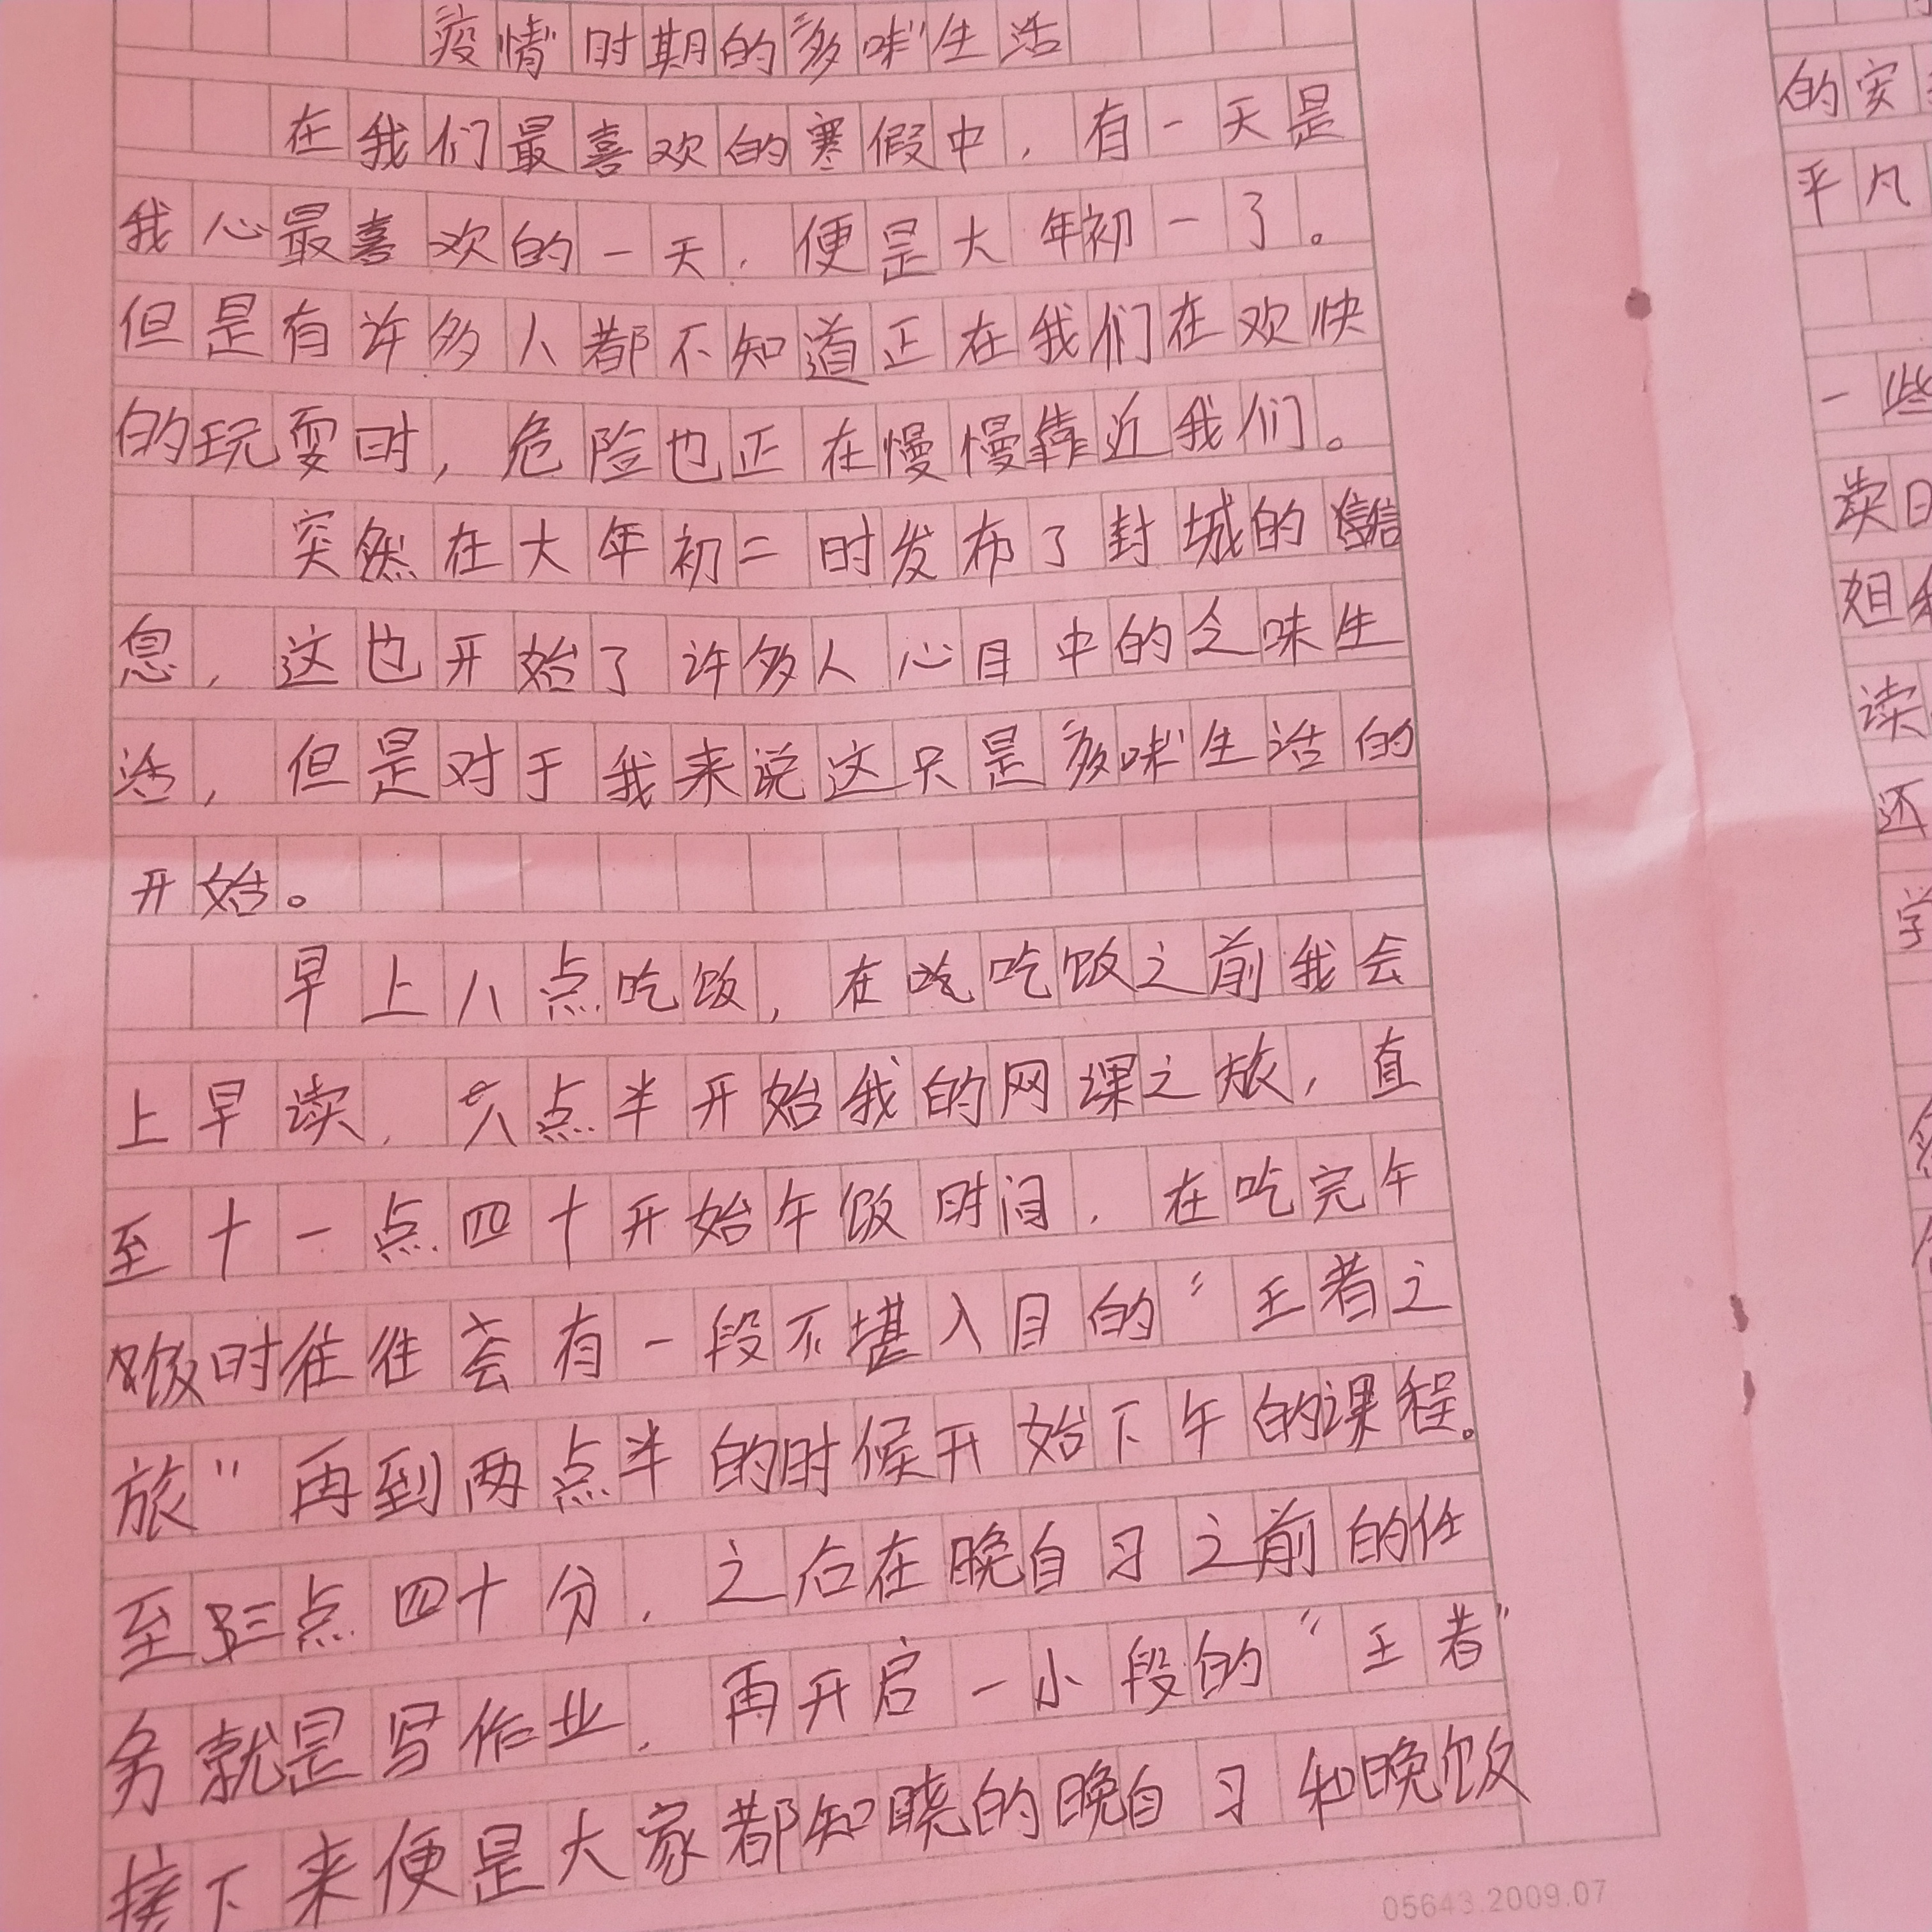 疫情时期的“多味”生活
在我们最喜欢的寒假中，有一天是
我心最喜欢的一天，便是大年初一了。
但是有许多人都不知道正在我们在欢快
的玩耍时，危险也正在慢慢靠近我们。
突然在大年初二时发布了封城的信
息，这也开始了许多人心目中的乏味生
活，但是对于我来说这只是“多味”生活的
开始。
早上八点吃饭，在吃吃饭之前我会
上早读，八点半开始我的网课之旅，直
至十一点四十开始午饭时间，在吃完午
饭时往往会有一段不堪入目的“王者之
旅”再到两点半的时候开始下午的课程。
至三点四十分，之后在晚自习之前的任
务就是写作业，再开启一小段的“王者”
接下来便是大家都知晓的晚自习和晚饭
05643.2009.07
的安
平凡
一些
读日
姐
读
还
学